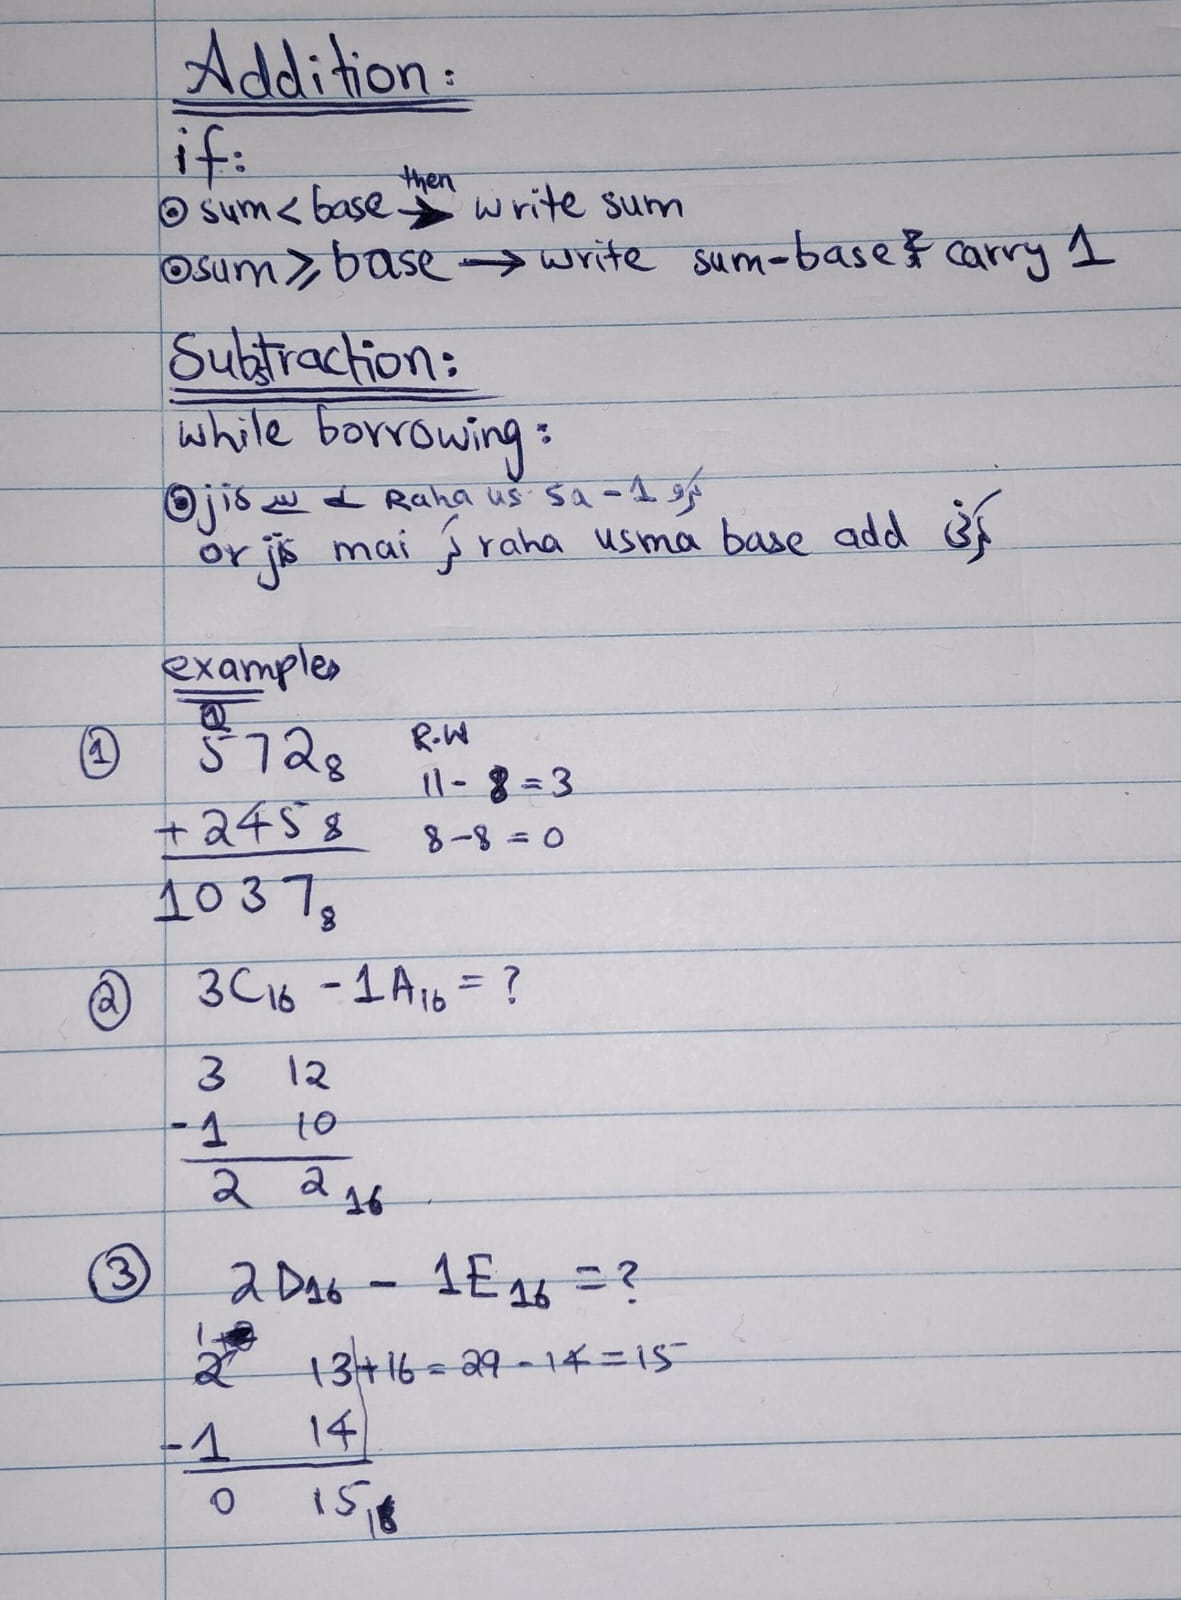 Addition:
if:
⊙ sum < base then → write sum
⊙ sum ≥ base → write sum-base & carry 1
Subtraction:
while borrowing:
⊙ jis سے Raha us sa -1 کرو
or jis mai کر raha usma base add کرنی
examples
① 1
572₈ R.W
11 - 8 = 3
+ 245₈
8 - 8 = 0
1037₈
② 3C₁₆ - 1A₁₆ = ?
3 12
- 1 10
2 2₁₆
③ 2D₁₆ - 1E₁₆ = ?
1
2 13 + 16 = 29 - 14 = 15
- 1 14
0 15₁₆